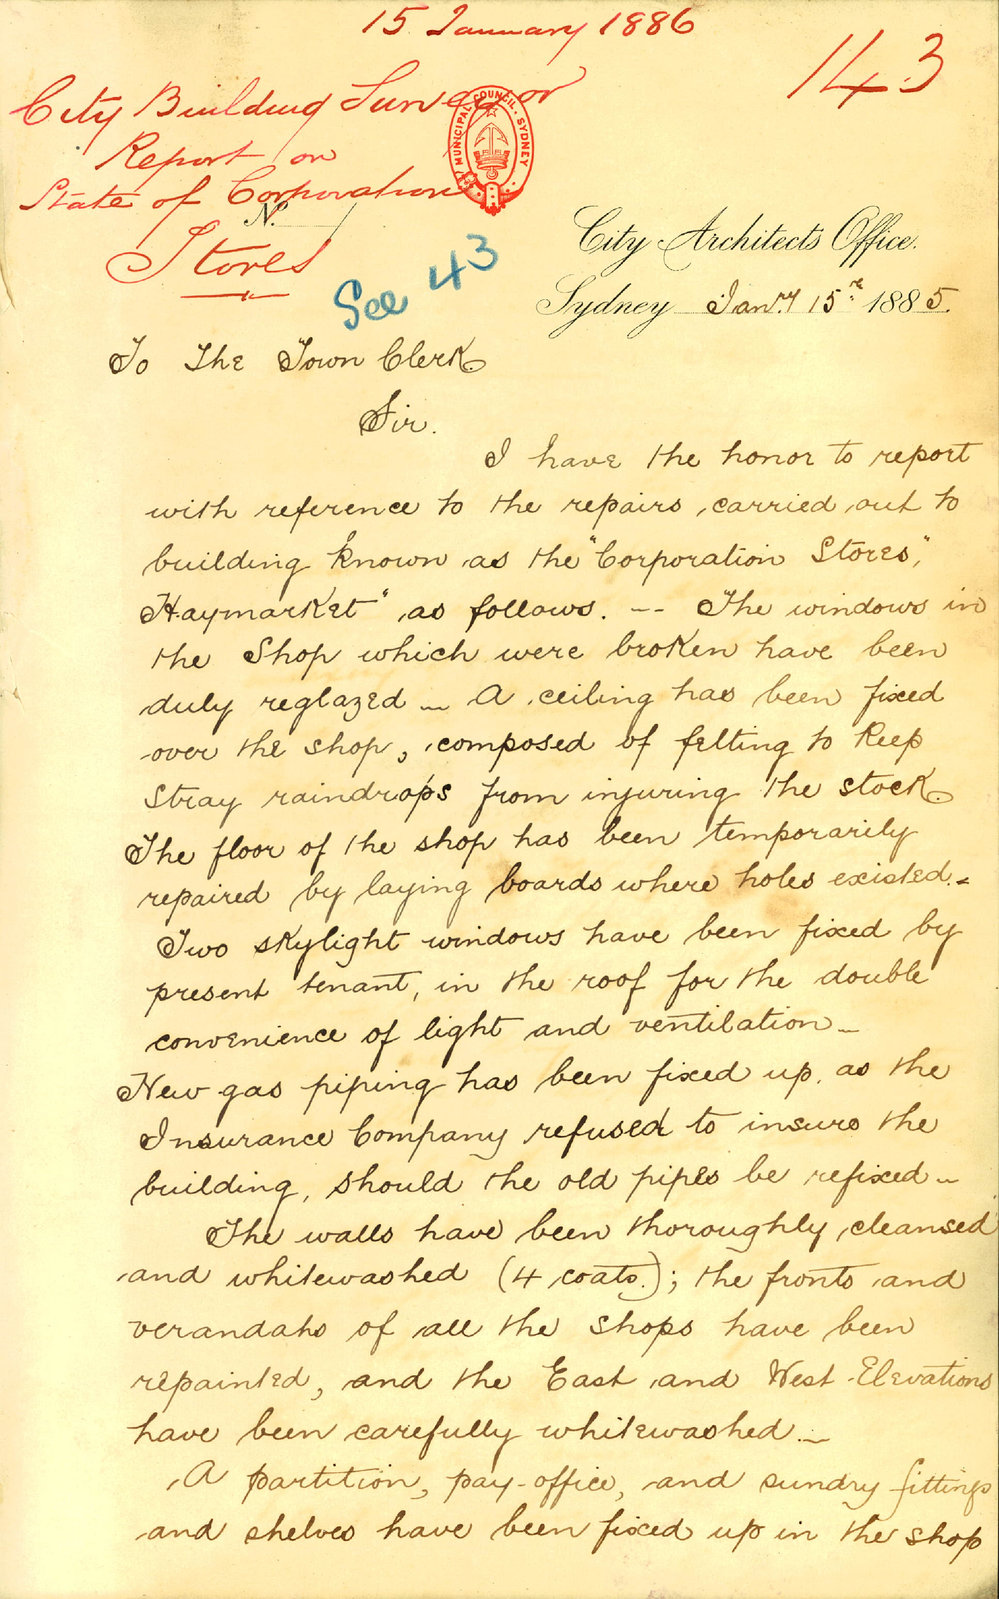 15 January 1886
143
City Building Surveyor
Report on
State of Corporation
Stores
MUNICIPAL COUNCIL. SYDNEY
No.
See 43
City Architects Office.
Sydney Jany 15th 1885.
To The Town Clerk
Sir.
I have the honor to report
with reference to the repairs carried out to
building known as the "Corporation Stores,"
Haymarket" as follows. -- The windows in
the Shop which were broken have been
duly reglazed — A ceiling has been fixed
over the shop, composed of felting to keep
stray raindrops from injuring the stock.
The floor of the shop has been temporarily
repaired by laying boards where holes existed.-
Two skylight windows have been fixed by
present tenant, in the roof for the double
convenience of light and ventilation—
New gas piping has been fixed up. as the
Insurance Company refused to insure the
building, should the old pipes be refixed—
The walls have been thoroughly cleansed
and whitewashed (4 coats.); the fronts and
verandahs of all the shops have been
repainted, and the East and West Elevations
have been carefully whitewashed.—
A partition, pay-office, and sundry fittings
and shelves have been fixed up in the shop